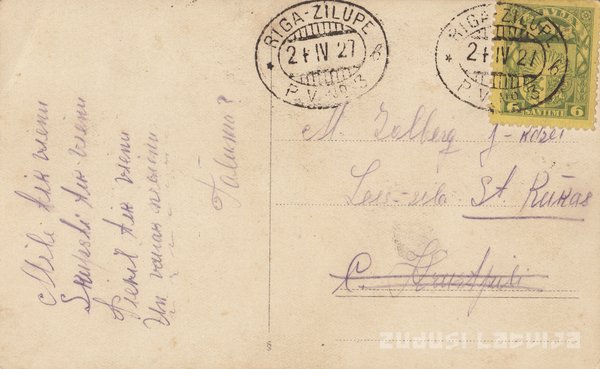 RIGA-ZILUPE
24 IV 27
P.V. № 3
RIGA-ZILUPE
24 IV 27
P.V. № 3
LATVIJA
6 SANTIMI 6
Mīli tik vienu
Skūpsti tik vienu
Pieķil tik vienu
Un vairāk nevienu
Tālumā?
M. Zolberg j-kdzei
St. Rūkas
zudusi Latvija